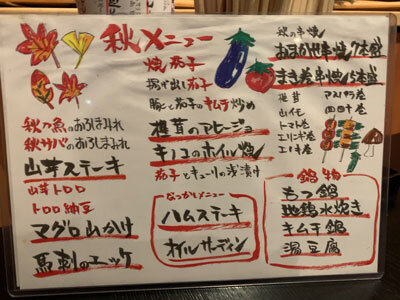 秋メニュー
焼茄子
揚げ出し茄子
豚と茄子のキムチ炒め
椎茸のアヒージョ
キノコのホイル焼
茄子とキューリの浅漬け
秋刀魚のあろしまみれ
秋サバのあろしまみれ
山芋ステーキ
山芋トロロ
トロロ納豆
マグロ山かけ
馬刺のユッケ
なつかしメニュー
ハムステーキ
オイルサーディン
秋の串焼
おまかせ串焼7本盛
まき巻串焼5本盛
椎茸
アスパラ巻
山イモ
トマト巻
エリンギ巻
エノキ巻
鍋物
もつ鍋
地鶏水炊き
キムチ鍋
湯豆腐